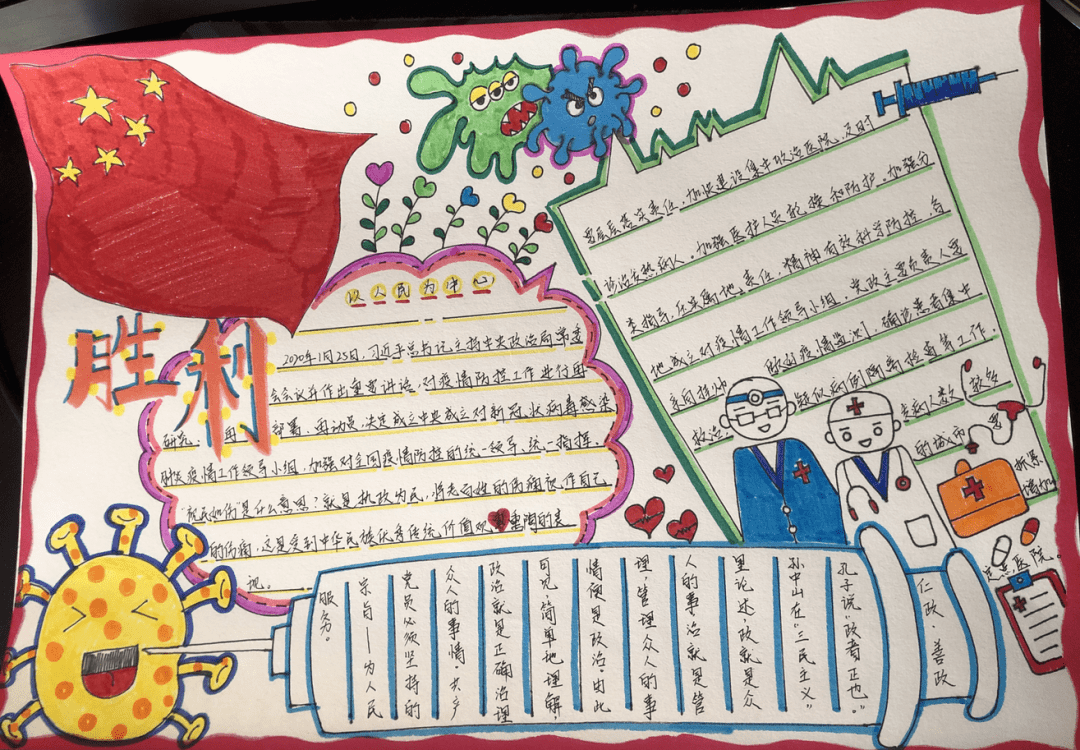 胜利
以人民为中心
2020年1月25日，习近平总书记主持中央政治局常委
会会议并作出重要讲话，对疫情防控工作进行再
研究、再部署、再动员，决定成立中央成立对新冠状病毒感染
肺炎疫情工作领导小组，加强对全国疫情防控的统一领导、统一指挥。
是什么意思？就是执政为民，将老百姓的 作自己
的伤痛，这是受到中华民族优秀传统价值观 的表
现。
层层落实责任，加快建设集中收治医院，及时
诊治发热病人。加强医护人员轮换和防护。加强分
类指导，压实属地责任，精神有效科学防控，各
地成立对疫情工作领导小组，党政主要负责人要
亲自挂帅 疫情监测，确诊患者集中
救治、疑似病例隔离检查等工作，
病人数 较多
的城市 要
抓紧
定点医院。
仁政·善政
孔子说“政者正也”
孙中山在“三民主义”
里论述，政就是众
人的事，治就是管
理，管理众人的事
情便是政治。由此
可见，简单地理解，
政治就是正确治理
众人的事情。共产
党员必须坚持的
宗旨——为人民
服务。